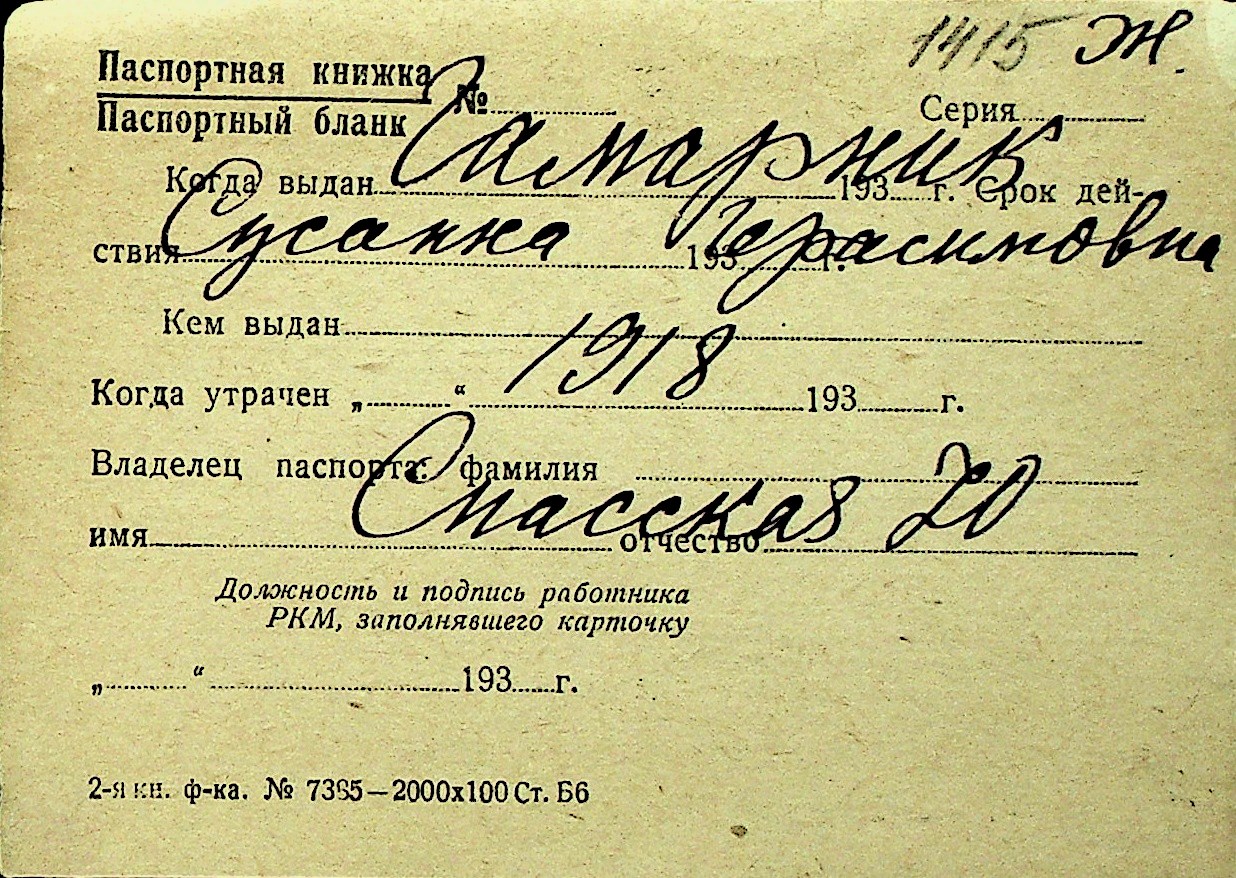 1415 Ж.
Паспортная книжка
Паспортный бланк
№ Серия
Самарник
Когда выдан 193 г. Срок дей-
Сусанна Герасимовна
ствия 193 г.
Кем выдан
1918
Когда утрачен „ “ 193 г.
Владелец паспорта: фамилия
Спасская 20
имя отчество
Должность и подпись работника
РКМ, заполнявшего карточку
„ “ 193 г.
2-я кн. ф-ка. № 7385—2000х100 Ст. Б6